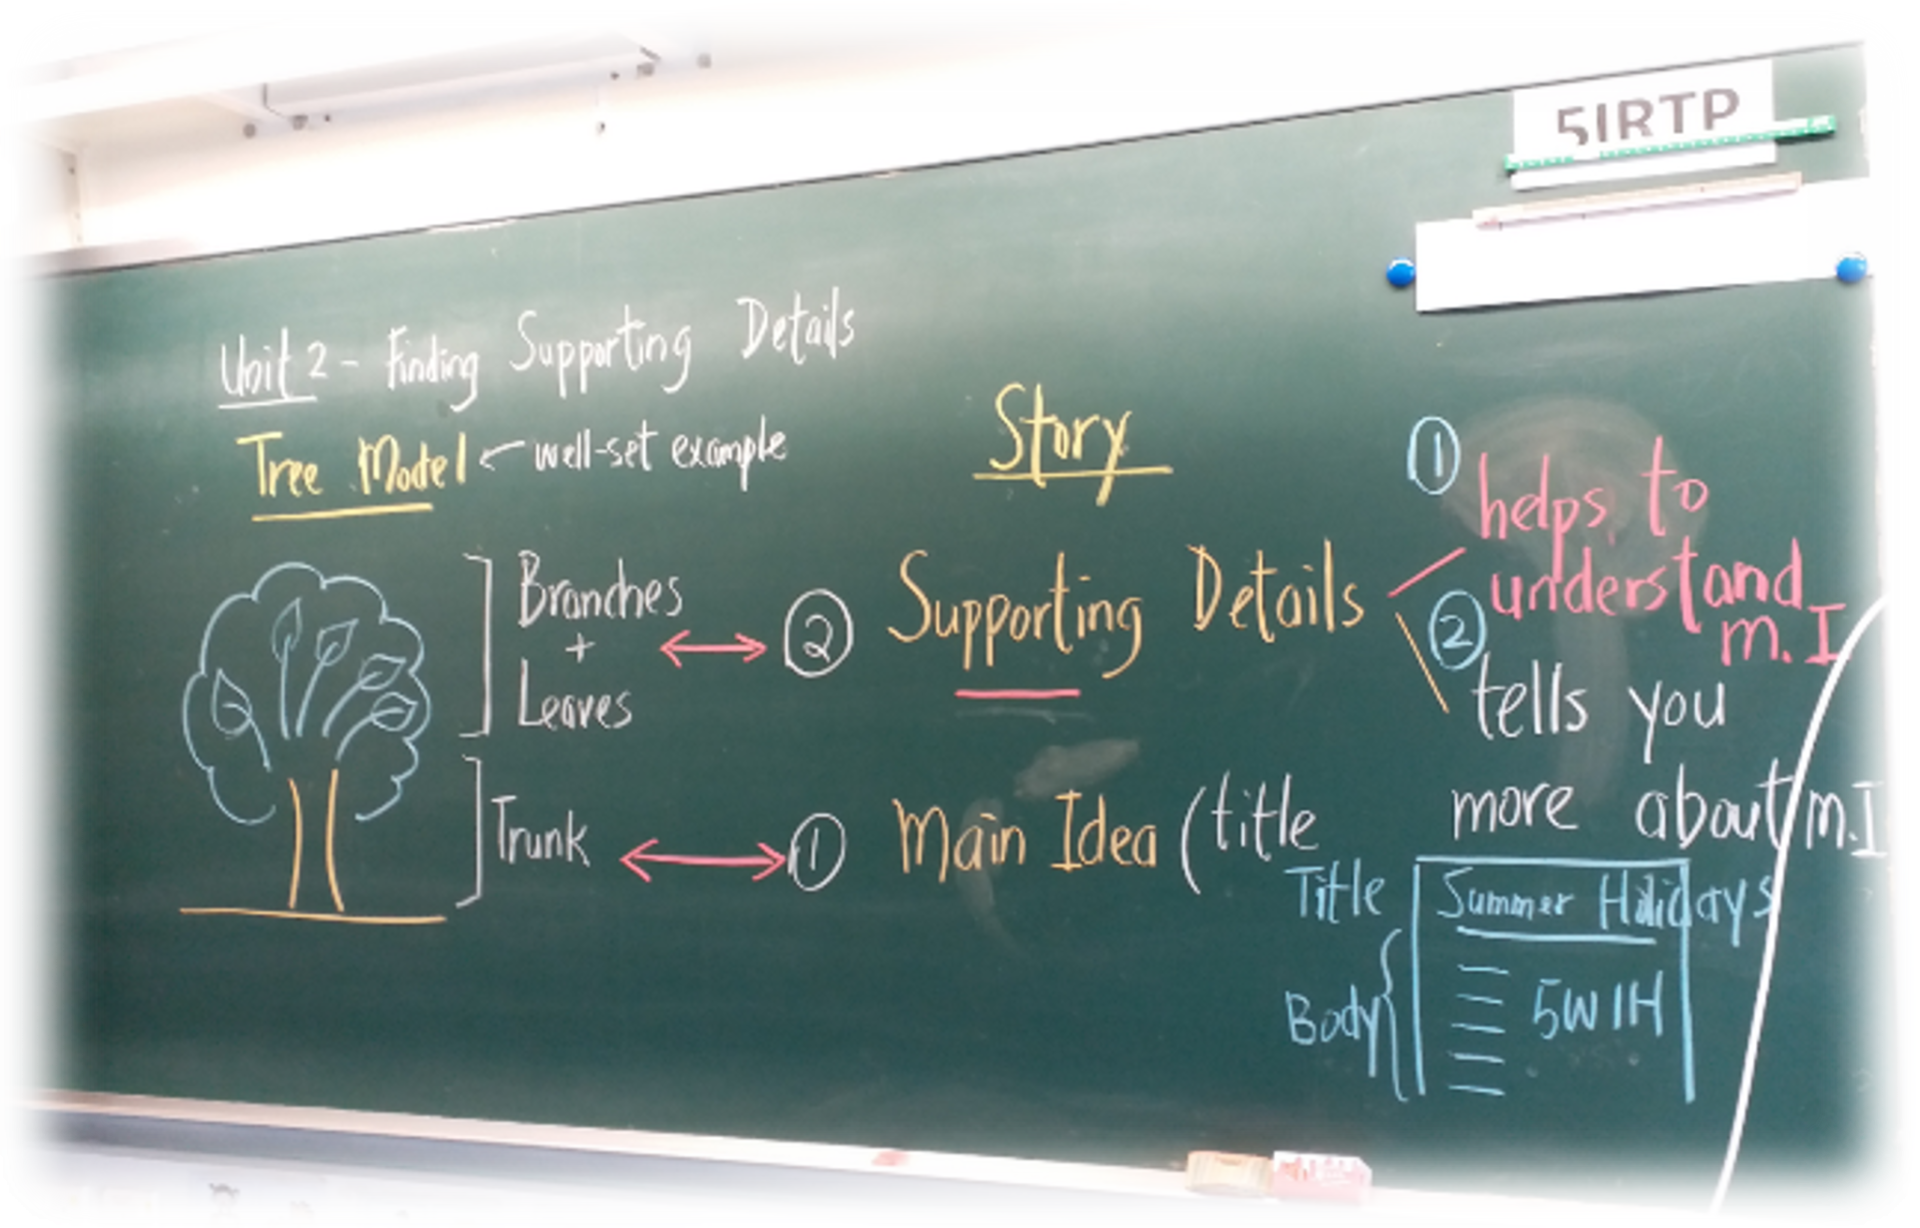 5IRTP
Unit 2 - Finding Supporting Details
Tree Model ← well-set example
Story
Branches
+
Leaves
② Supporting Details
① helps to
understand
m.I
② tells you
more about m.I
Trunk
① Main Idea (title
Title
Summer Holidays
Body{
5W1H